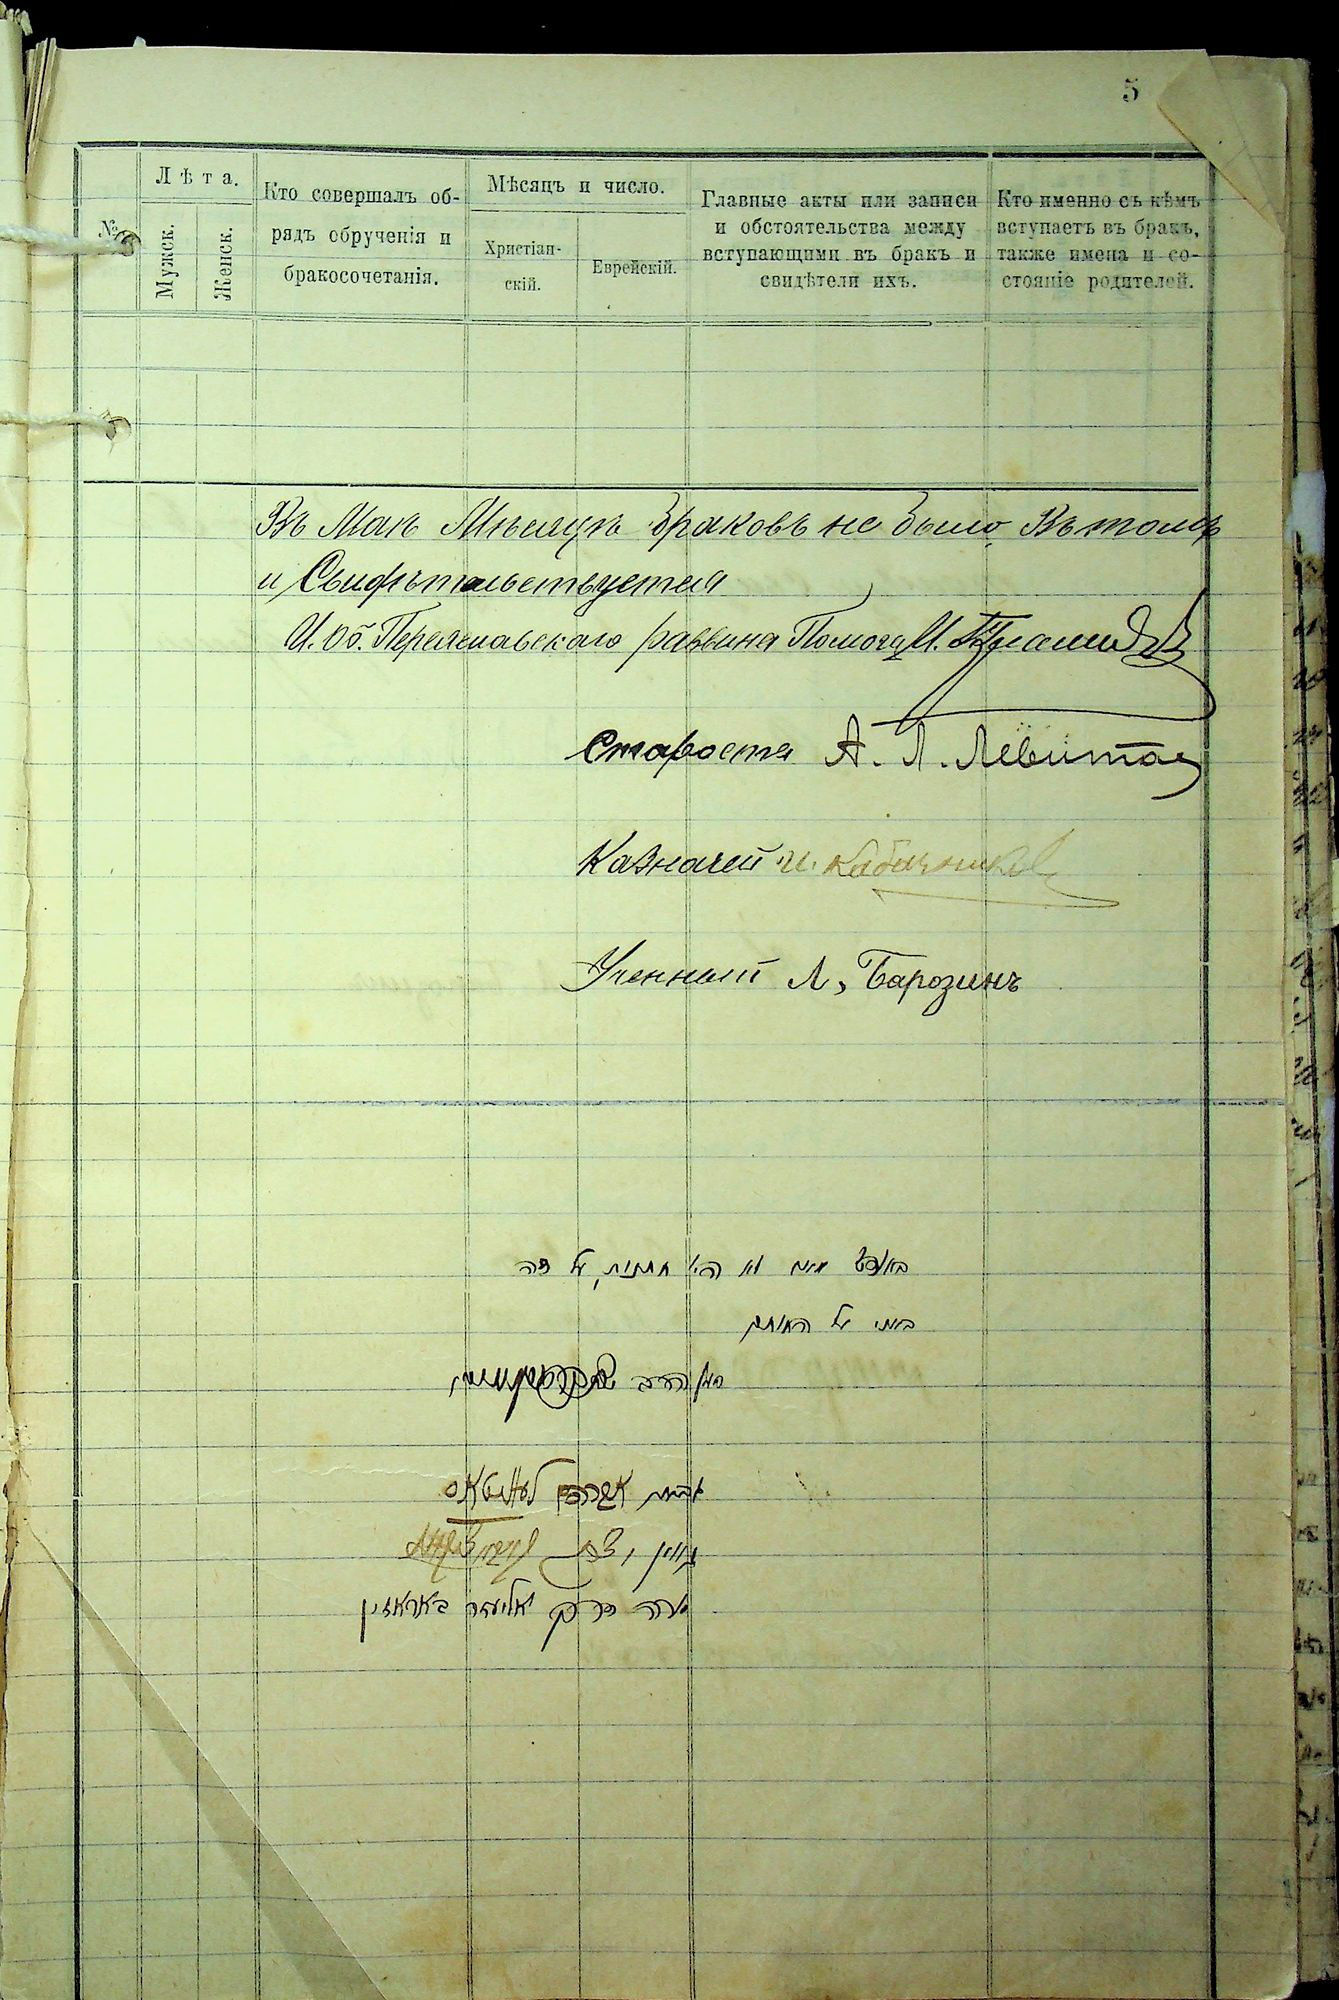 5
№
Лѣта.
Мужск.
Женск.
Кто совершалъ об-
рядъ обрученія и
бракосочетанія.
Мѣсяцъ и число.
Христіан-
скій.
Еврейскій.
Главные акты или записи
и обстоятельства между
вступающими въ бракъ и
свидѣтели ихъ.
Кто именно съ кѣмъ
вступаетъ въ бракъ,
также имена и со-
стояніе родителей.
Въ Маѣ Мѣсяцѣ браковъ не было, Въ томъ
и Свидѣтельствуетъя
И. об. Переяславскаго раввина Помощ. И.
Староста А. Л. Левитан
Казначей И. Кабачников
Ученный Л. Барозинъ
מאי לא היו חתונות, על זה
באתי על החתום
הרב
לעוויטאן
נאמן
אליעזר באראזין